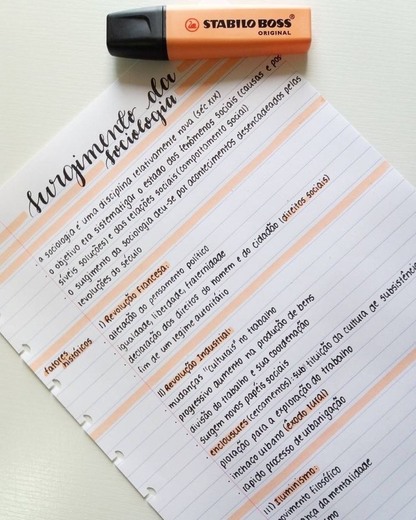 STABILO BOSS
ORIGINAL
surgimento da
sociologia
a sociologia é uma disciplina relativamente nova (séc XIX)
o objetivo era sistematizar o estado dos fenômenos sociais (causas e pos
síveis soluções) e das relações sociais (comportamento social)
o surgimento da sociologia deu-se por acontecimentos desencadeados pelas
revoluções do século
fatores
históricos
I) Revolução Francesa:
alteração do pensamento político
igualdade, liberdade, fraternidade
declaração dos direitos do homem e do cidadão (direitos sociais)
fim de um regime autoritário
II) Revolução Industrial:
mudanças "culturais" no trabalho
progressivo aumento na produção de bens
divisão do trabalho e sua coordenação
surgem novos papéis sociais
enclousures (cercamentos), substituição da cultura de subsistênc
para a exploração do trabalho
inchaço urbano (êxodo rural)
rápido processo de urbanização
III) Iluminismo:
movimento filosófico
da mentalidade